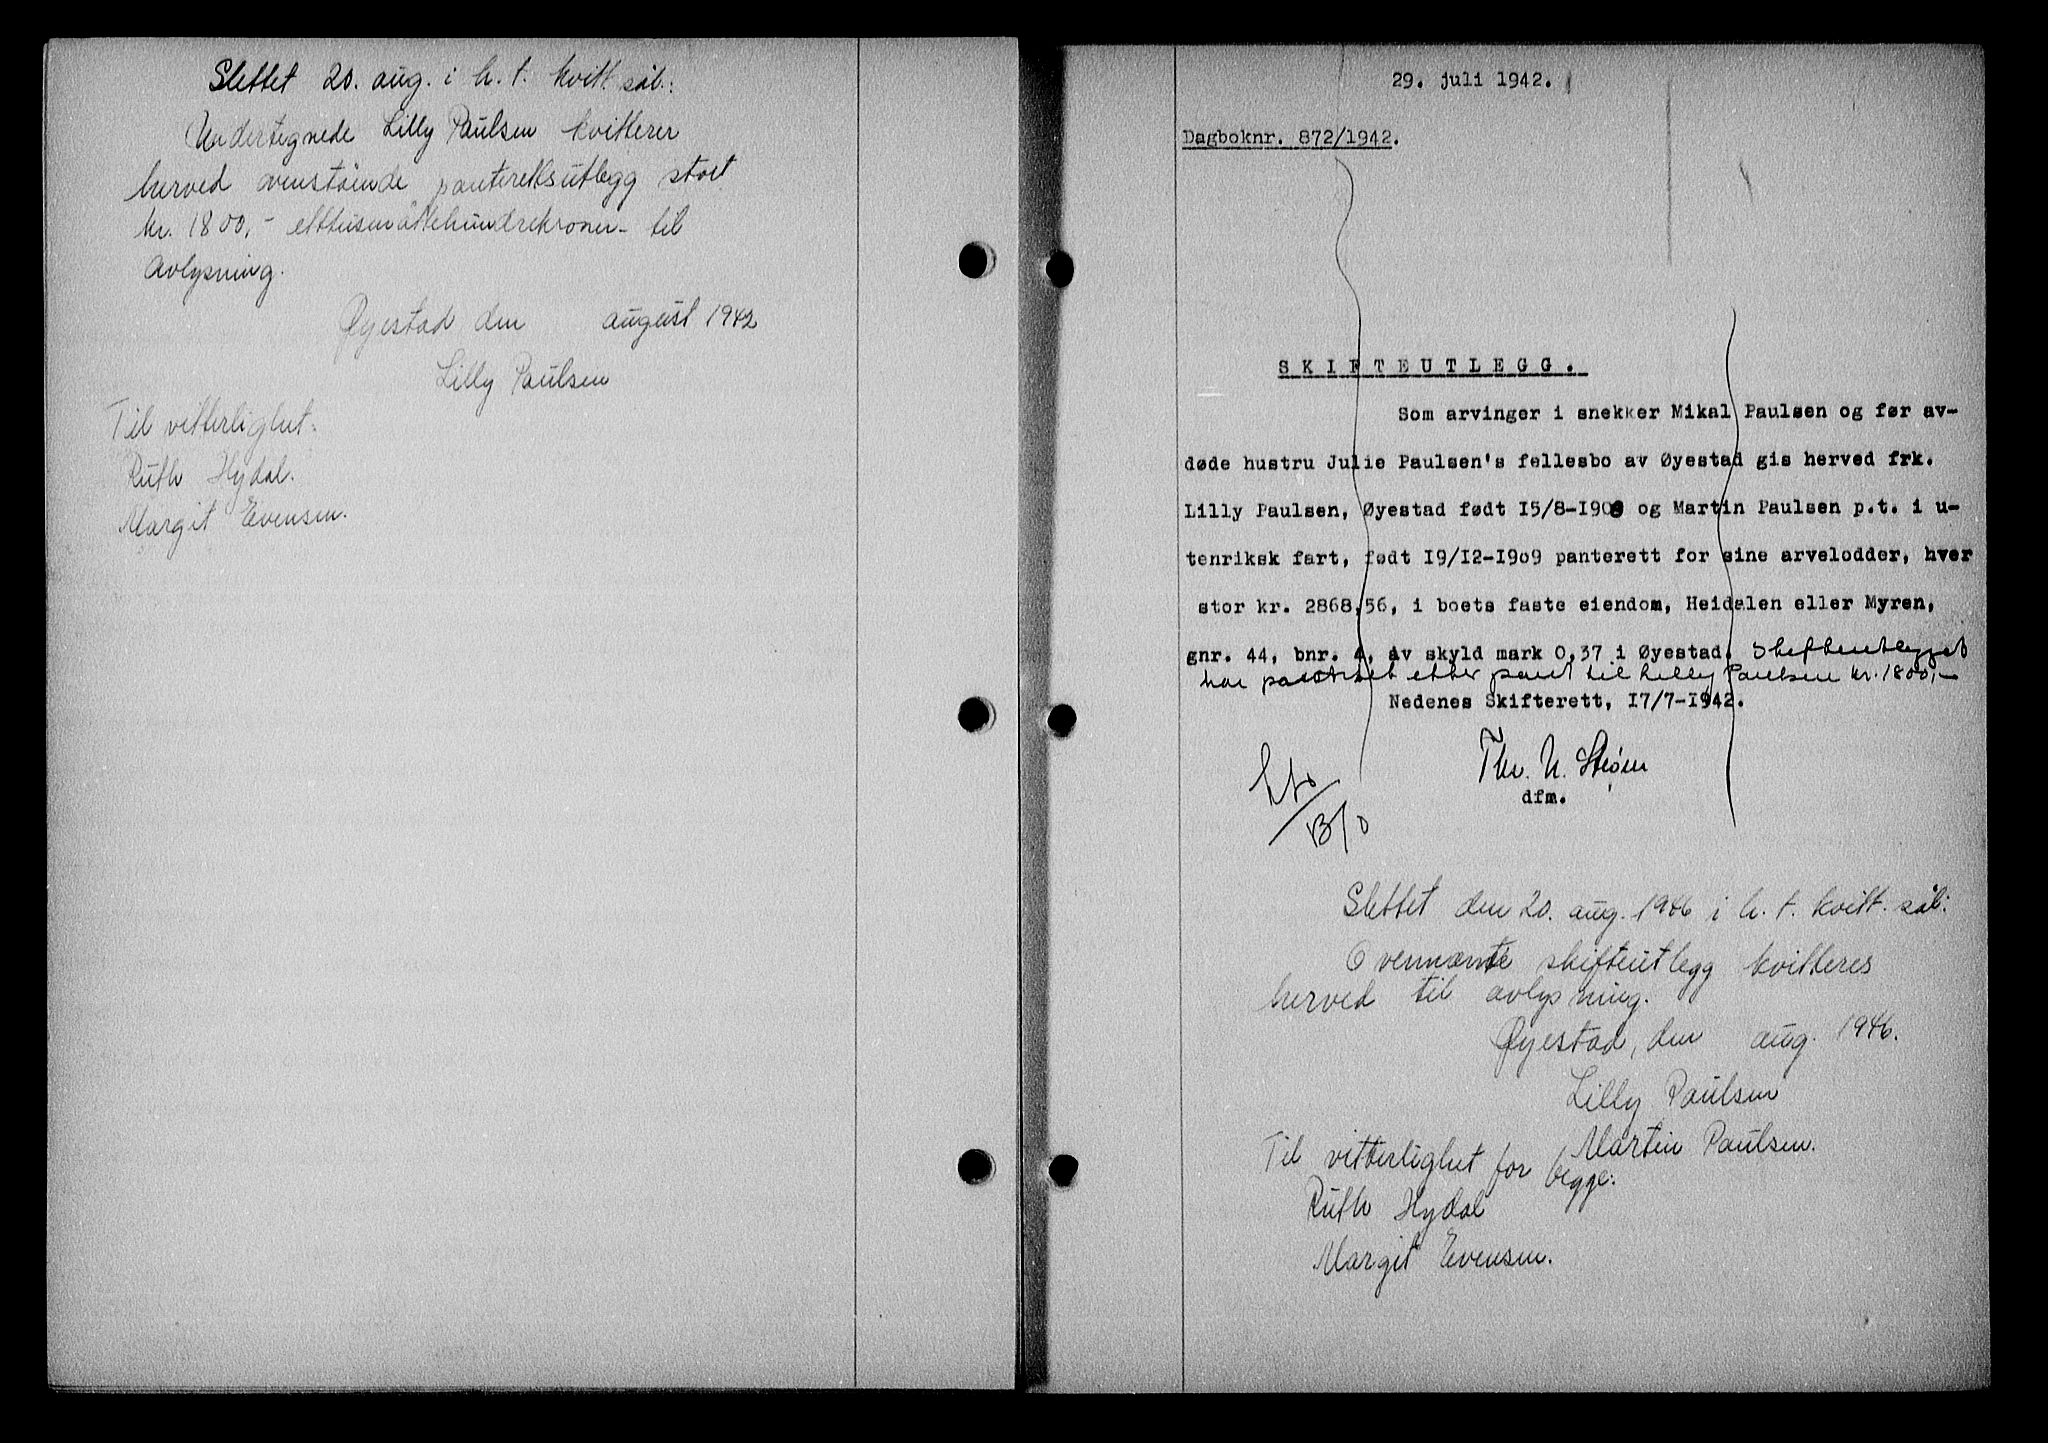 Slettet 20. aug. i h. t. kvitt. sål.:
Undertegnede Lilly Paulsen kvitterer
herved ovenstående panterettsutlegg stort
kr. 1800,- ettusenåttehundrekroner- til
avlysning.
Øyestad den august 1942
Lilly Paulsen
Til vitterlighet:
Ruth Hydal.
Margit Evensen.
29. juli 1942.
Dagboknr. 872/1942.
SKIFTEUTLEGG.
Som arvinger i snekker Mikal Paulsen og før av-
døde hustru Julie Paulsen's fellesbo av Øyestad gis herved frk.
Lilly Paulsen, Øyestad født 15/8-1908 og Martin Paulsen p.t. i u-
tenriksk fart, født 19/12-1909 panterett for sine arvelodder, hver
stor kr. 2868,56, i boets faste eiendom, Heidalen eller Myren,
gnr. 44, bnr. 4, av skyld mark 0,37 i Øyestad. Skifteutlegget
har prioritet etter pant til Lilly Paulsen kr. 1800,-
Nedenes Skifterett, 17/7-1942.
dfm.
Slettet den 20. aug. 1946 i h. t. kvitt. sål:
Ovennevnte skifteutlegg kvitteres
herved til avlysning.
Øyestad, den aug. 1946.
Lilly Paulsen
Martin Paulsen.
Til vitterlighet for begge:
Ruth Hydal
Margit Evensen.